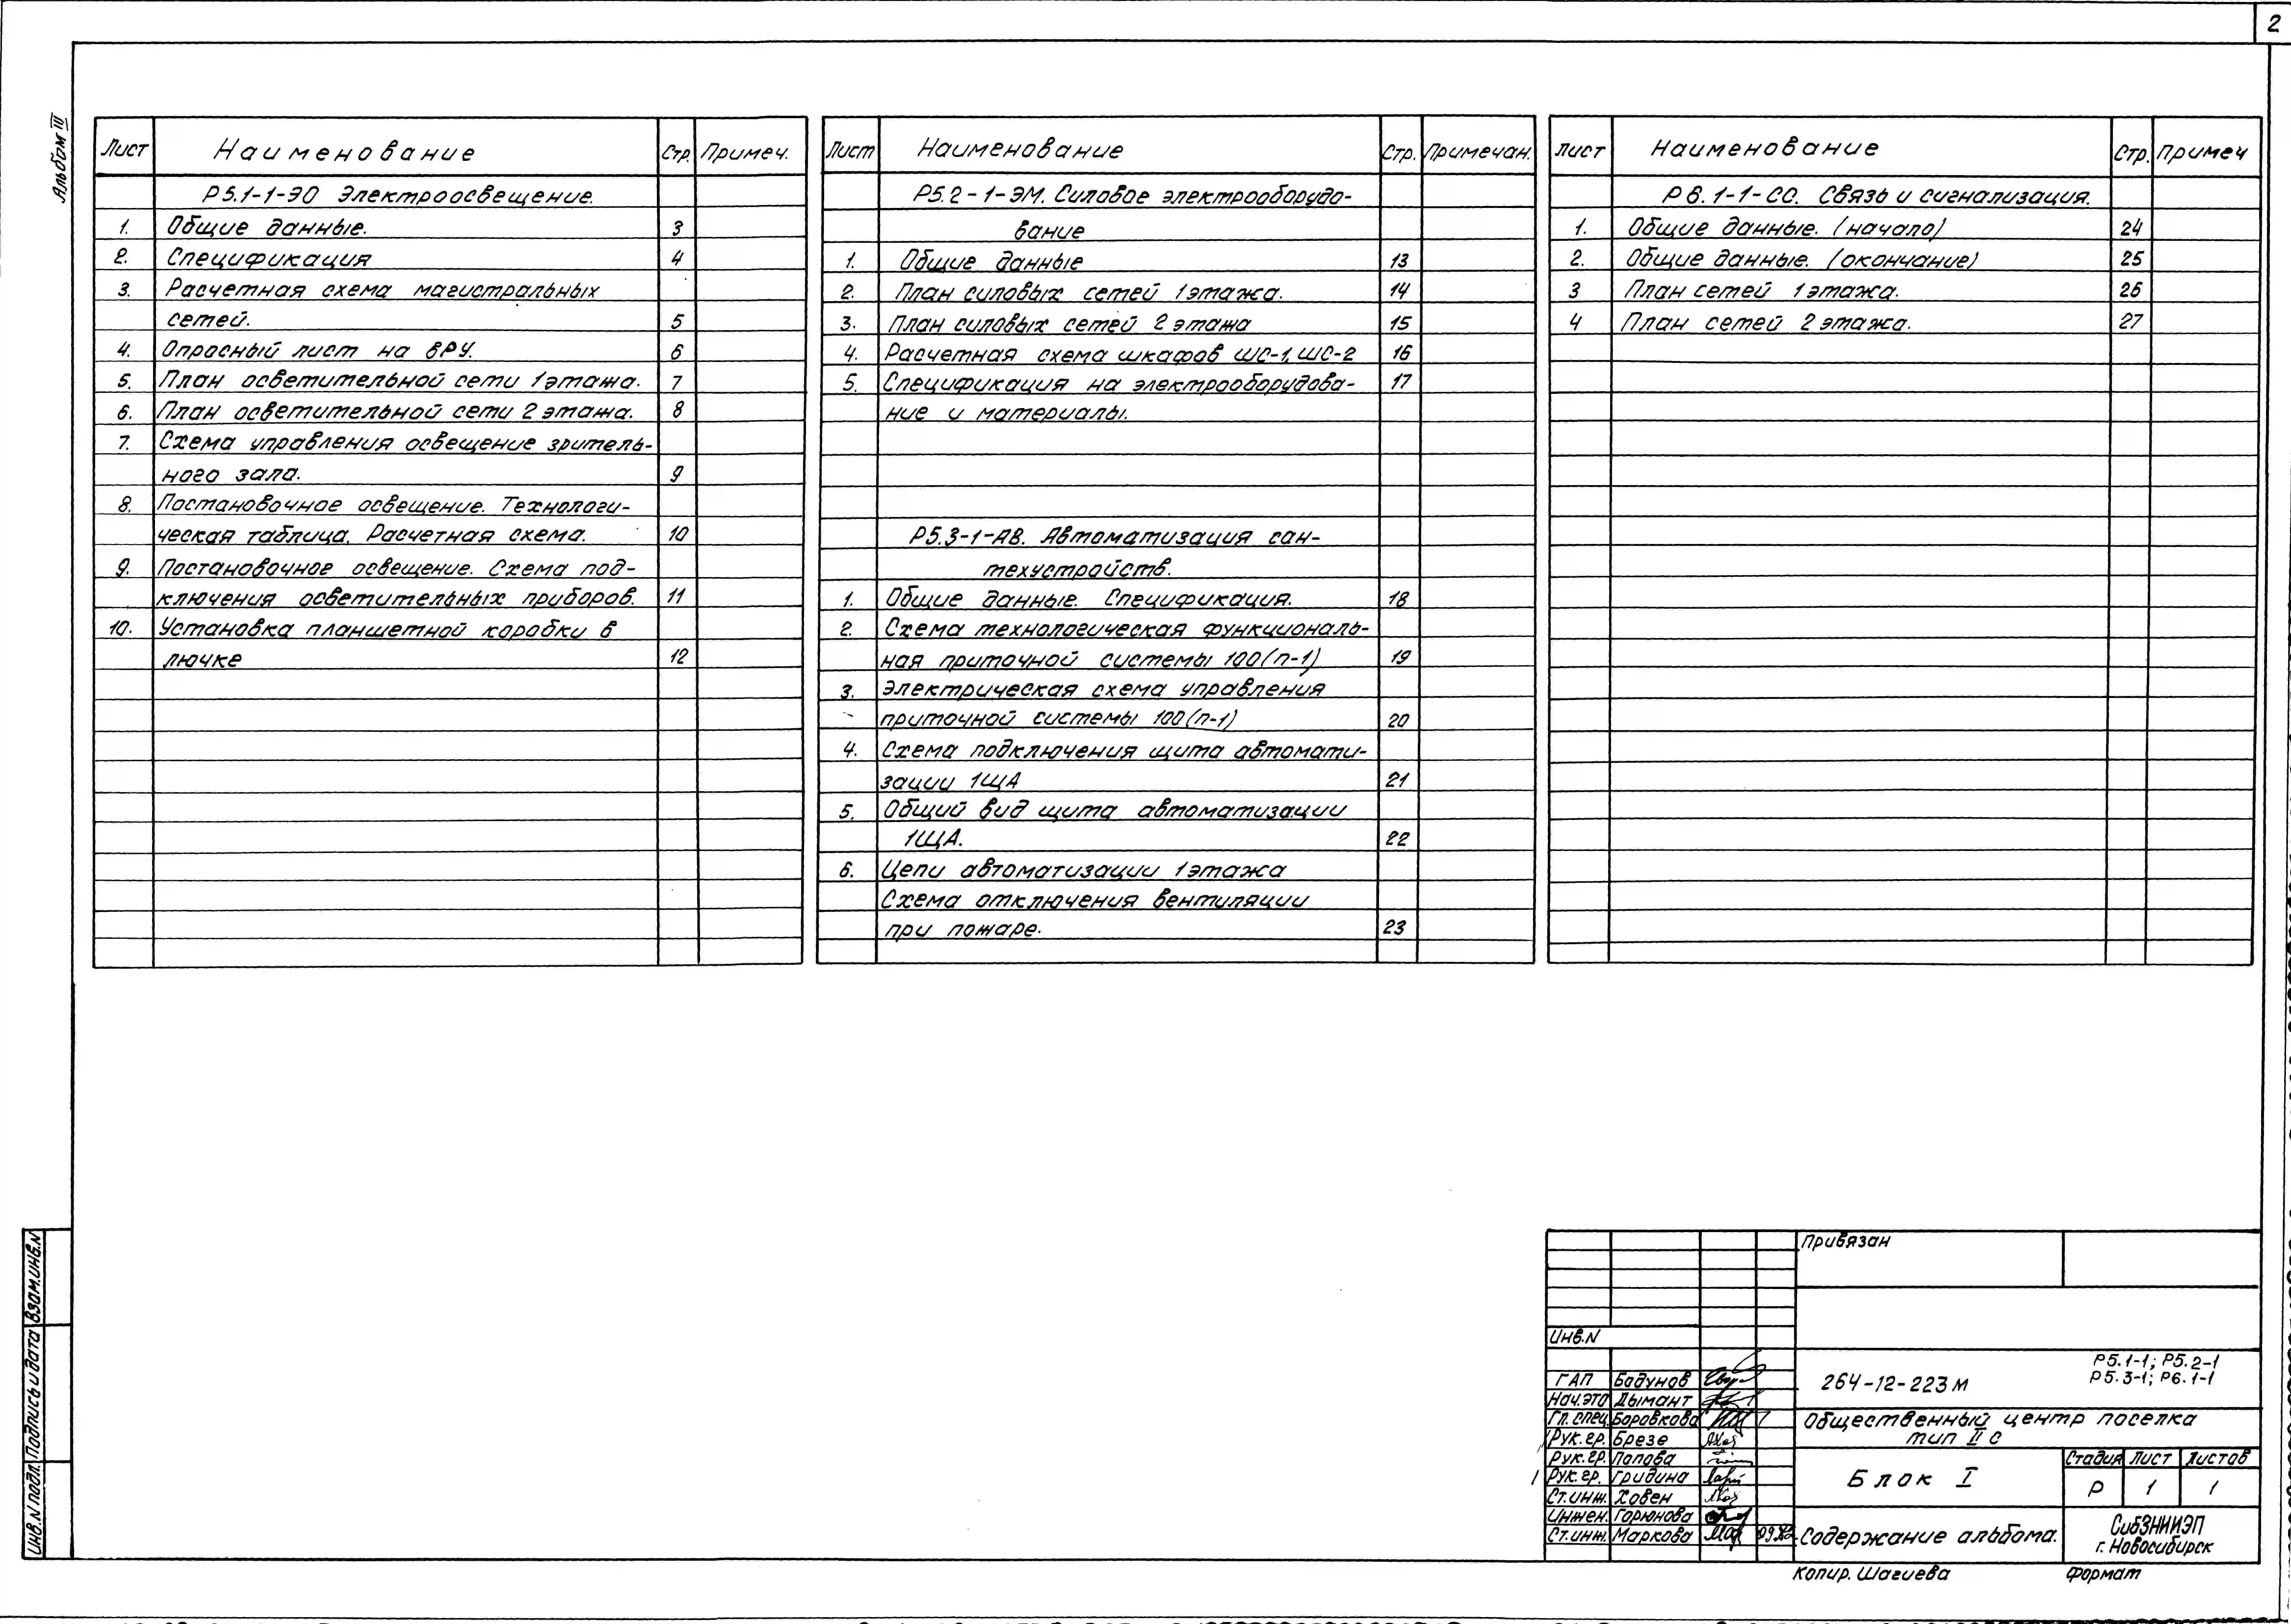 2
Альбом III
Лист Наименование Стр. Примеч.
Р5.1-1-ЭО Электроосвещение.
1. Общие данные. 3
2. Спецификация 4
3. Расчетная схема магистральных
сетей. 5
4. Опросный лист на ВРУ. 6
5. План осветительной сети 1 этажа. 7
6. План осветительной сети 2 этажа. 8
7. Схема управления освещение зритель-
ного зала. 9
8. Постановочное освещение. Технологи-
ческая таблица. Расчетная схема. 10
9. Постановочное освещение. Схема под-
ключения осветительных приборов. 11
10. Установка планшетной коробки в
лючке 12
Лист Наименование Стр. Примечан.
Р5.2-1-ЭМ. Силовое электрооборудо-
вание
1. Общие данные 13
2. План силовых сетей 1 этажа. 14
3. План силовых сетей 2 этажа 15
4. Расчетная схема шкафов ШС-1, ШС-2 16
5. Спецификация на электрооборудова- 17
ние и материалы.
Р5.3-1-АВ. Автоматизация сан-
техустройств.
1. Общие данные. Спецификация. 18
2. Схема технологическая функциональ-
ная приточной системы 100(п-1) 19
3. Электрическая схема управления
приточной системы 100(п-1) 20
4. Схема подключения щита автомати-
зации 1ЩА 21
5. Общий вид щита автоматизации
1ЩА. 22
6. Цепи автоматизации 1 этажа
Схема отключения вентиляции
при пожаре. 23
Лист Наименование Стр. Примеч
Р6.1-1-СО. Связь и сигнализация.
1. Общие данные. (начало) 24
2. Общие данные. (окончание) 25
3 План сетей 1 этажа. 26
4 План сетей 2 этажа. 27
Инв.N подл. Подпись и дата Взам.инв.N
Привязан
Инв.N
ГАП Бадунов
Нач.ЭТО Дымант
Гл. спец. Боровкова
Рук.гр. Брезе
Рук.гр. Попова
Рук.гр. Гридина
Ст.инж. Ховен
Инжен. Горюнова
Ст.инж. Маркова
264-12-223м
Р5.1-1; Р5.2-1
Р5.3-1; Р6.1-1
Общественный центр поселка
тип II с
Блок I
Стадия Лист Листов
Р 1 1
Содержание альбома.
СибЗНИИЭП
г. Новосибирск
Копир. Шагиева Формат